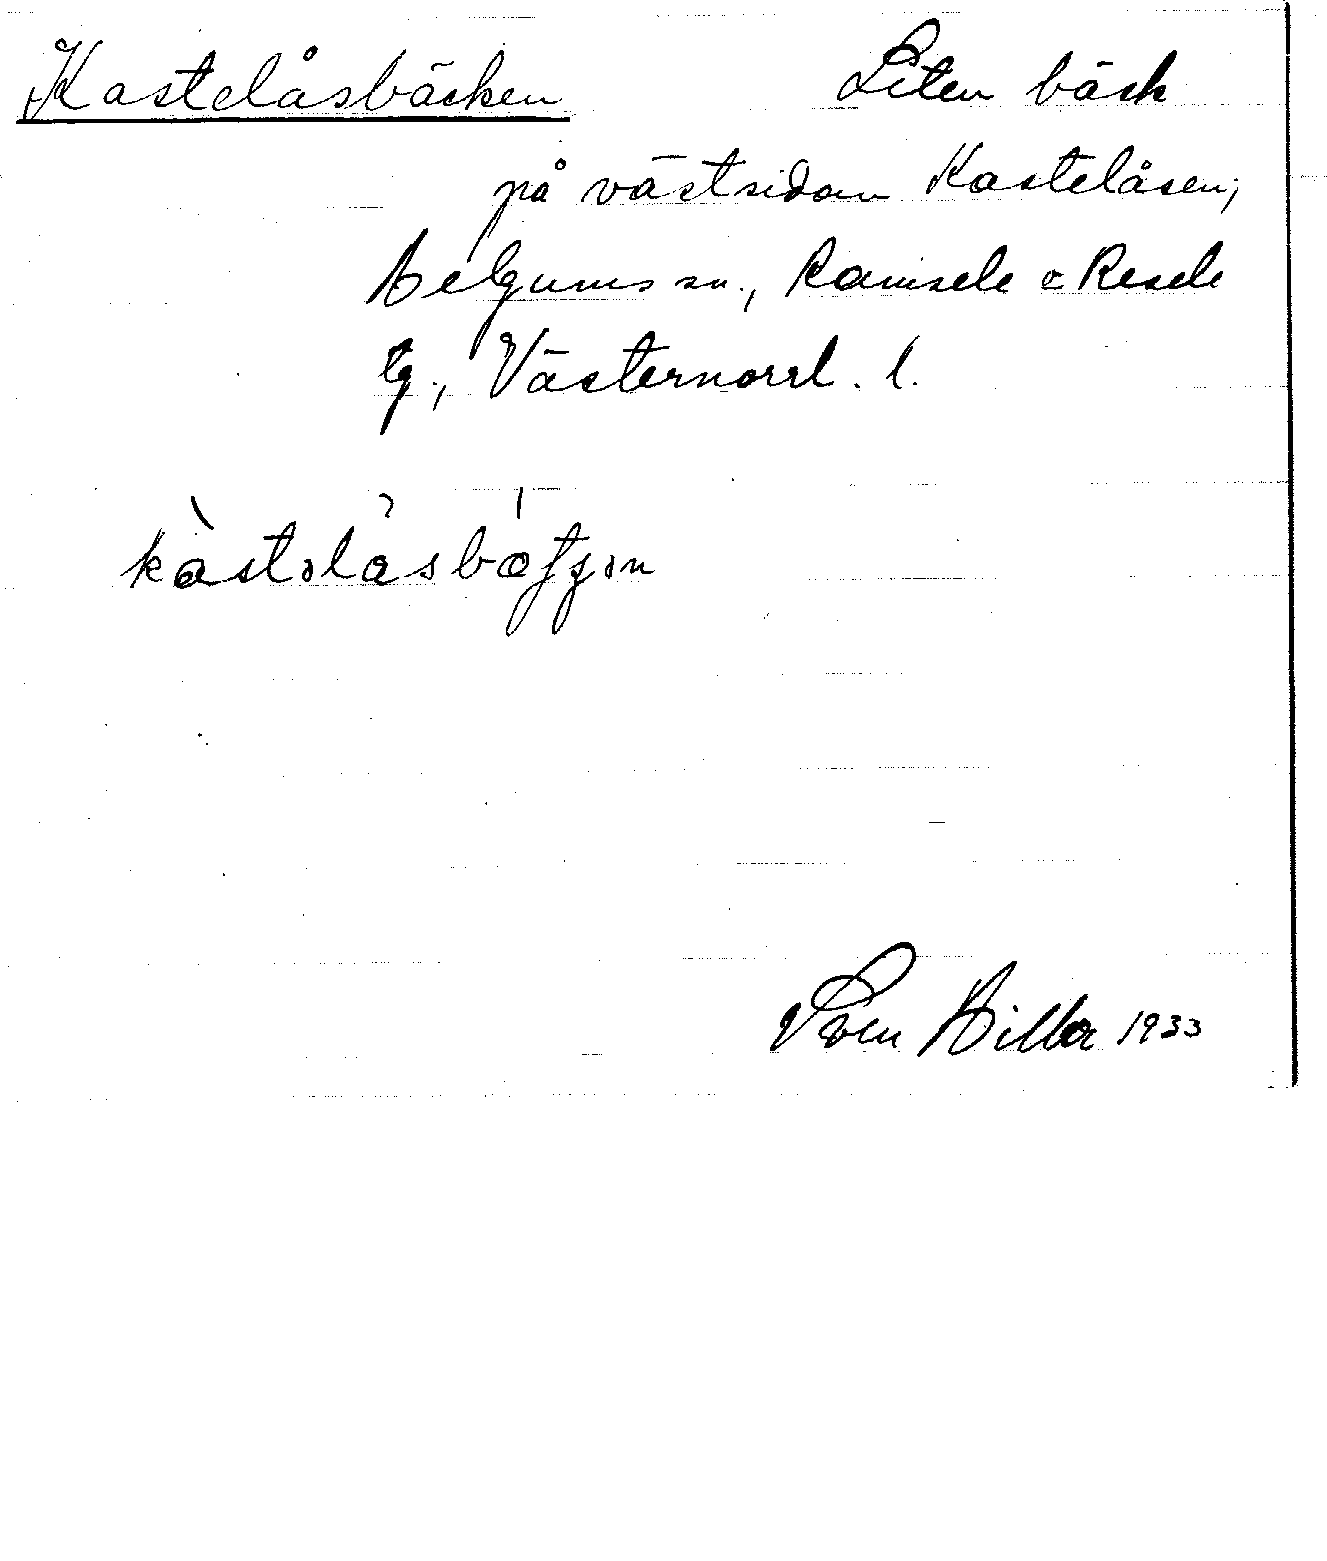 Kastelåsbäcken Liten bäck
på västsidan Kastelåsen,
Helgums sn., Ramsele o Resele
tg., Västernorrl. l.
Sven Hiller 1933